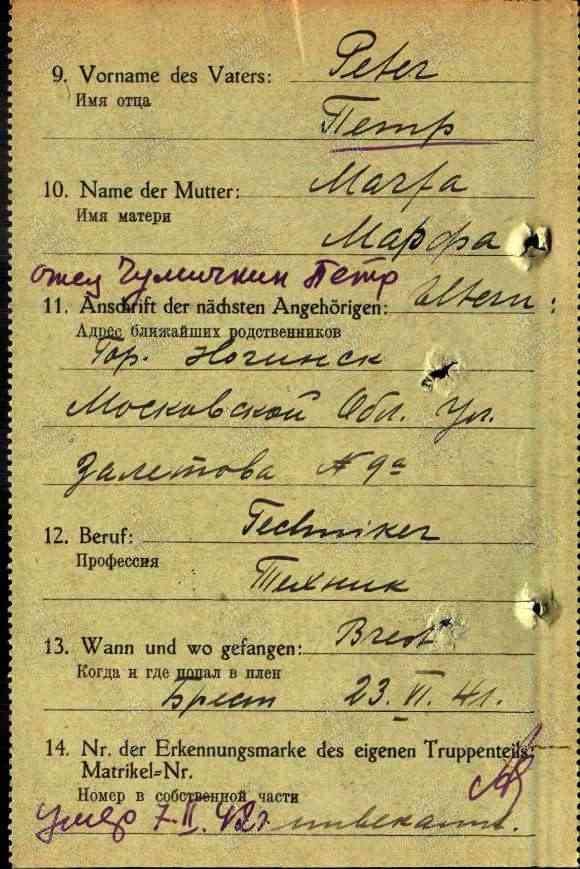 9. Vorname des Vaters: Peter
Имя отца
Петр
10. Name der Mutter: Marfa
Имя матери
Марфа
отец Чумичкин Петр
11. Anschrift der nächsten Angehörigen: Eltern:
Адрес ближайших родственников
Гор. Ногинск
Московской Обл. Ул.
Залетова № 9а
12. Beruf: Techniker
Профессия
Техник
13. Wann und wo gefangen: Brest
Когда и где попал в плен
Брест 23. VI. 41.
14. Nr. der Erkennungsmarke des eigenen Truppenteils:
Matrikel=Nr.
Номер в собственной части
умер 7. II. 42 г. unbekannt.